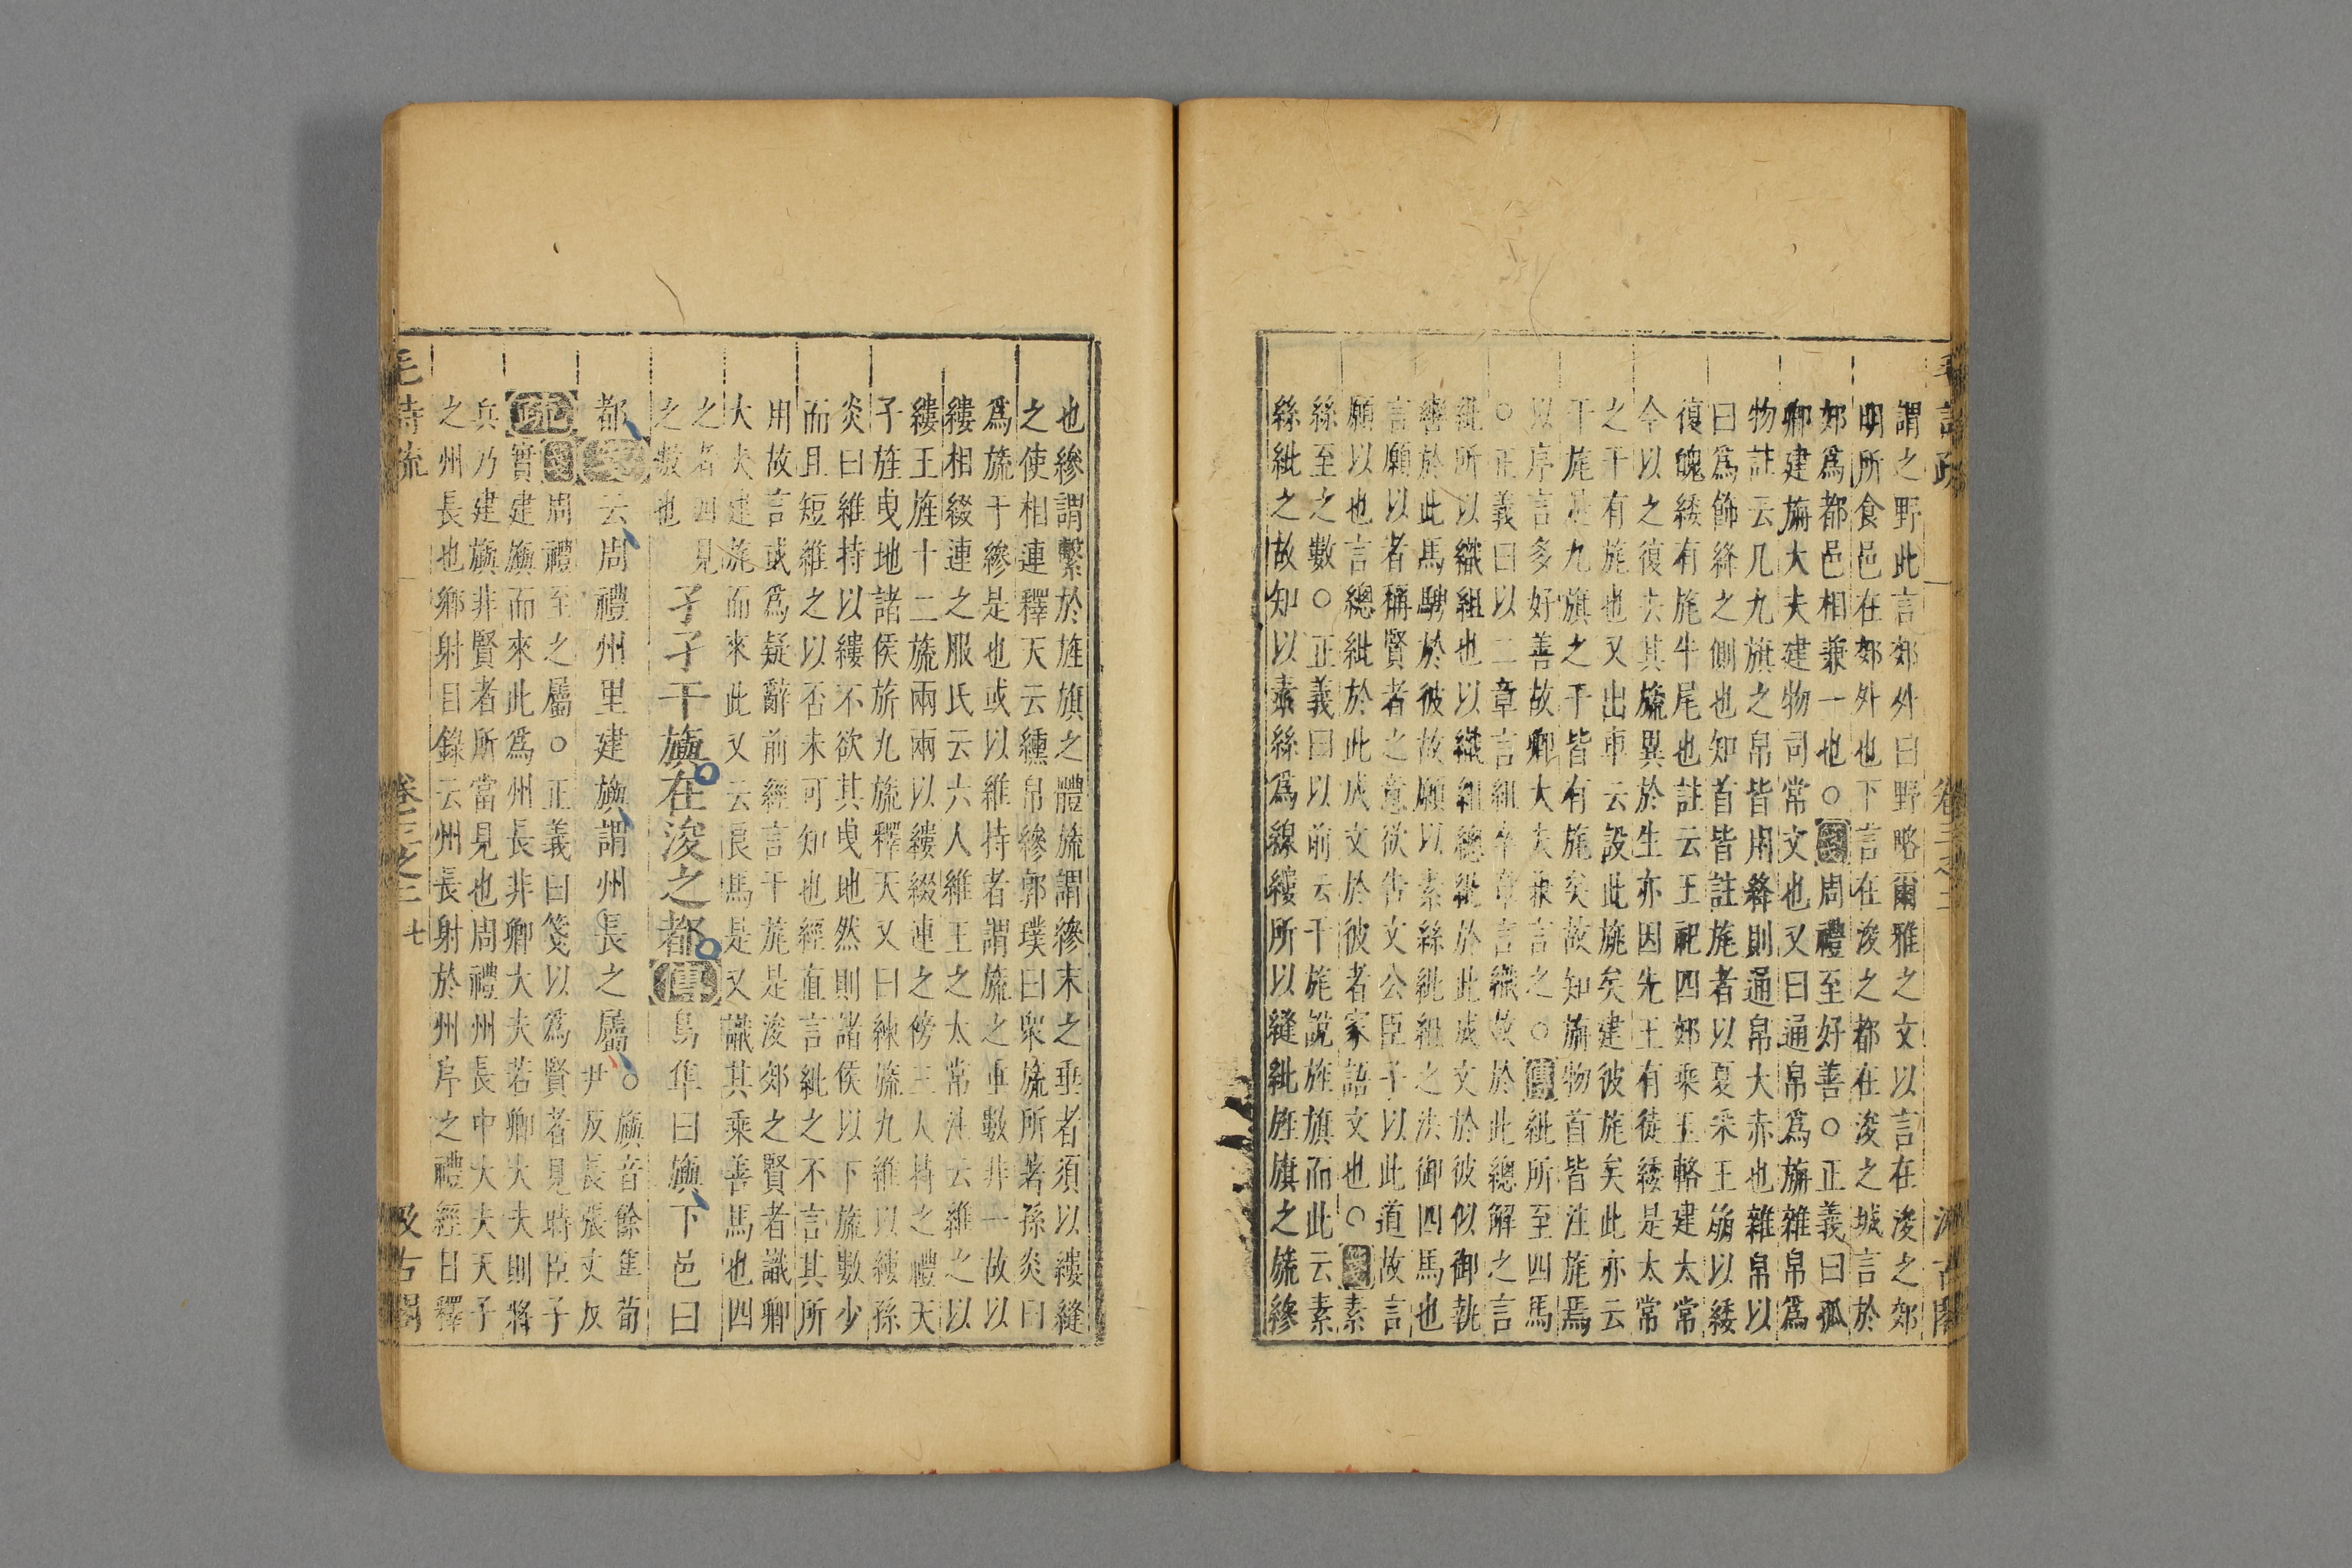 謂之野此言郊外曰野略爾雅之文以言在浚之郊
明所食邑在郊外也下言在浚之都在浚之城言於
郊爲都邑相兼一也○周禮至好善○正義曰孤
卿建旃大夫建物司常文也又曰通帛爲旃雜帛爲
物註云凡九旗之帛皆用絳則通帛大赤也雜帛以
白爲飾絳之側也知首皆註旄者以夏采王崩以綏
復魄綏有旄牛尾也註云王祀四郊乘玉輅建太常
今以之復去其旒異於生亦因先王有徒綏是太常
之干有旄也又出車云設此旐矣建彼旄矣此亦云
干旄是九旗之干皆有旄矣故知旃物首皆注旄焉
以序言多好善故卿大夫兼言之○傳紕所至四馬
○正義曰以二章言組卒章言織故於此總解之言
紕所以織組也以織組總紕於此成文於彼似御執
轡於此馬騁於彼故願以素絲紕組之法御四馬也
言願以者稱賢者之意欲告文公臣子以此道故言
願以也言總紕於此成文於彼者家語文也○素
絲至之數○正義曰以前云干旄說旌旗而此云素
絲紕之故知以素絲爲線縷所以縫紕旌旗之旒縿
也縿謂繫於旌旗之體旒謂縿末之垂者須以縷縫
之使相連釋天云纁帛縿郭璞曰衆旒所著孫炎曰
爲旒于縿是也或以維持者謂旒之垂數非一故以
縷相綴連之服氏云六人維王之太常注云維之以
縷王旌十二旒兩兩以縷綴連之傍三人持之禮天
子旌曳地諸侯旂九旒釋天又曰練旒九維以縷孫
炎曰維持以縷不欲其曳地然則諸侯以下旒數少
而且短維之以否未可知也經直言紕之不言其所
用故言或爲疑辭前經言干旄是浚郊之賢者識卿
大夫建旄而來此又云良馬是又識其乘善馬也四
之者四見
之數也
孑孑干旟在浚之都傳鳥隼曰旟下邑曰
都云周禮州里建旟謂州長之屬○旟音餘隼荀
尹反長張丈反
周禮至之屬○正義曰箋以爲賢者見時臣子
實建旟而來此爲州長非卿大夫若卿大夫則將
兵乃建旟非賢者所當見也周禮州長中大夫天子
之州長也鄉射目錄云州長射於州序之禮經曰釋
毛詩疏 卷三之二 七 汲古閣